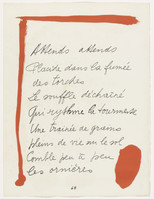 Attends attends
Plaide dans la fumée
des torches
Le souffle déchaîné
Qui rythme la tourmente
Une traînée de grains
Pleins de vie on le sol
Comble peu à peu
Les ornières